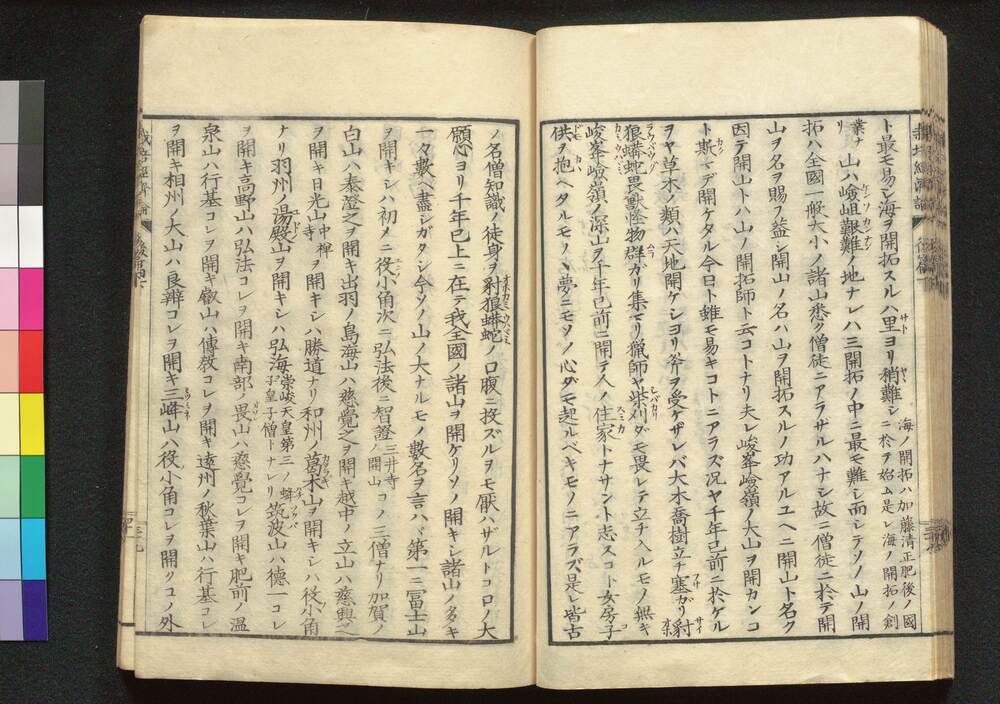 ト最モ易シ海ヲ開拓スルハ里ヨリ稍難シ海ノ開拓ハ加藤清正肥後ノ國ニ於テ始ム是レ海ノ開拓ノ創
業ナリ山ハ嶮岨艱難ノ地ナレハ三開拓ノ中ニ最モ難シ而シテソノ山ノ開
拓ハ全國一般大小ノ諸山悉ク僧徒ニアラザルハナシ故ニ僧徒ニ於テ開
山ヲ名ヲ賜フ益シ開山ノ名ハ山ヲ開拓スルノ功アルユヘニ開山ト名ク
因テ開山トハ山ノ開拓師ト云コトナリ夫レ峻峯嶮嶺ノ大山ヲ開カンコ
ト斯マデ開ケタル今日ト雖モ易キコトニアラズ况ヤ千年已前ニ於ケル
ヲヤ草木ノ類ハ天地開ケシヨリ斧ヲ受ケザレバ大木喬樹立チ塞ガリ豺
狼蟒蛇畏獸怪物群ガリ集マリ獵師ヤ柴刈ダモ畏レテ立チ入ルモノ無キ
峻峯嶮嶺ノ深山ヲ千年已前ニ開テ人ノ住家トナサント志スコト女房子
供ヲ抱ヘタルモノヽ夢ニモソノ心ダモ起ルベキモノニアラズ是レ皆古
ノ名僧知識ノ徒身ヲ豺狼蟒蛇ノ口腹ニ投ズルヲモ厭ハザルトコロノ大
願心ヨリ千年已上ニ在テ我全國ノ諸山ヲ開ケリソノ開キシ諸山ノタキ
一々數ヘ盡シガタシ今ソノ山ノ大ナルモノヽ數名ヲ言ハヽ第一ニ冨士山
ヲ開キシハ初メニ役小角次ニ弘法後ニ智證三井寺ノ開山コノ三僧ナリ加賀ノ
白山ハ泰澄之ヲ開キ出羽ノ鳥海山ハ慈覺之ヲ開キ越中ノ立山ハ慈興之
ヲ開キ日光山中禪寺ヲ開キシハ勝道ナリ和州ノ葛木山ヲ開キシハ役小角
ナリ羽州ノ湯殿山ヲ開キシハ弘海崇峻天皇第三ノ皇子僧トナレリ筑波山ハ德一コレ
ヲ開キ高野山ハ弘法コレヲ開キ南部ノ畏山ハ慈覺コレヲ開キ肥前ノ溫
泉山ハ行基コレヲ開キ叡山ハ傳敎コレヲ開キ遠州ノ秋葉山ハ行基コレ
ヲ開キ相州ノ大山ハ良辨コレヲ開キ三峰山ハ役小角コレヲ開クコノ外